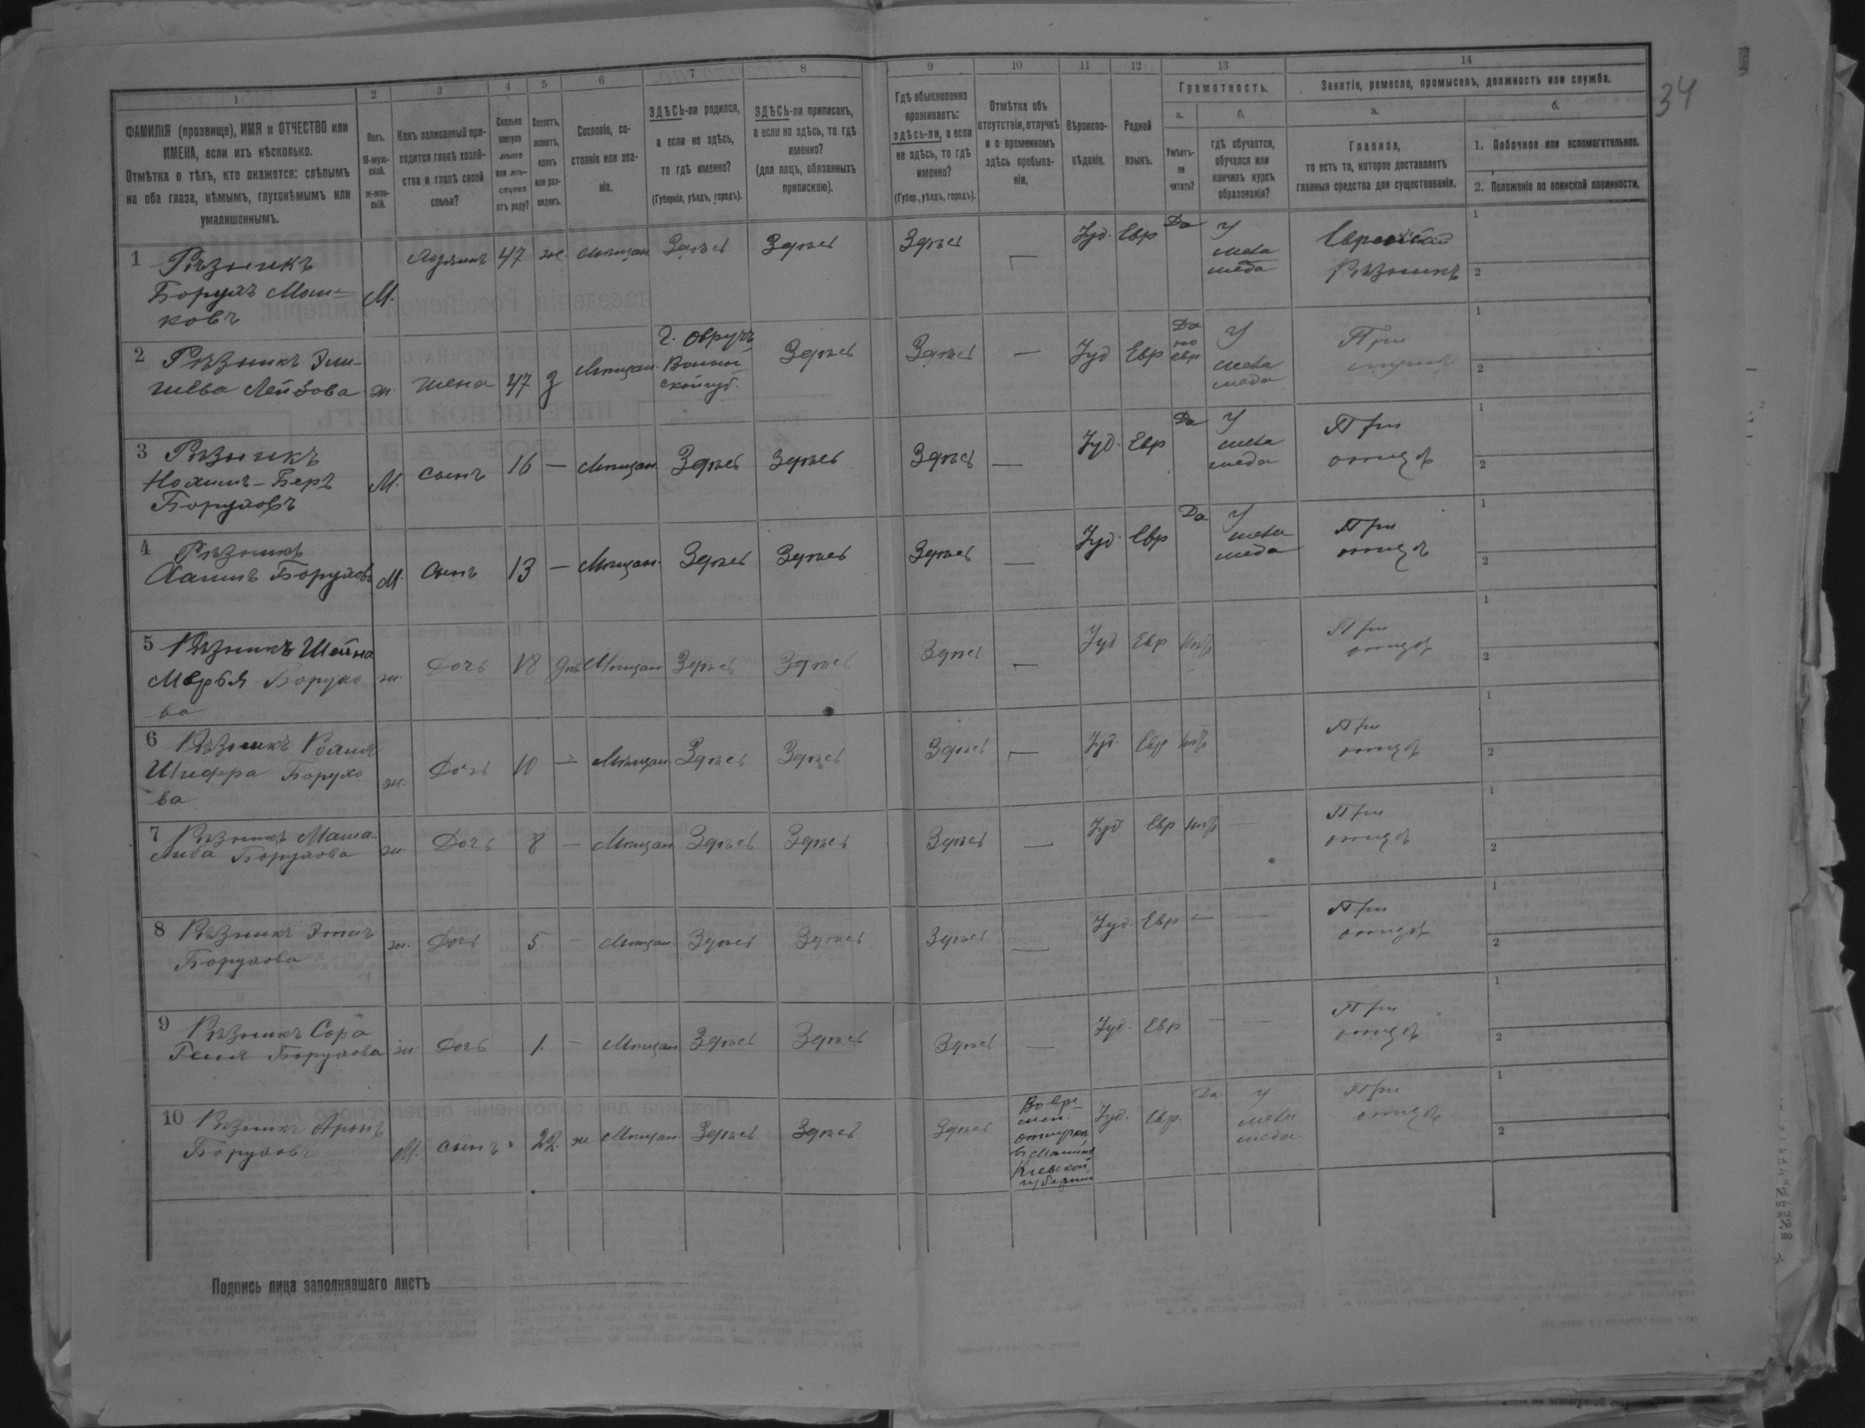 34
1 2 3 4 5 6 7 8 9 10 11 12 13 14
ФАМИЛІЯ (прозвище), ИМЯ и ОТЧЕСТВО или
ИМЕНА, если ихъ нѣсколько.
Отмѣтка о тѣхъ, кто окажется: слѣпымъ
на оба глаза, нѣмымъ, глухонѣмымъ или
умалишеннымъ.
Полъ.
М-муж-
ской.
Ж-жен-
скій.
Какъ записанный при-
ходится главѣ хозяй-
ства и главѣ своей
семьи?
Сколько
минуло
лѣтъ
или мѣ-
сяцевъ
отъ роду?
Холостъ,
женатъ,
вдовъ
или раз-
веденъ.
Сословіе, со-
стояніе или зва-
ніе.
ЗДѢСЬ-ли родился,
а если не здѣсь,
то гдѣ именно?
(Губернія, уѣздъ, городъ).
ЗДѢСЬ-ли приписанъ,
а если не здѣсь, то гдѣ
именно?
(для лицъ, обязанныхъ
припискою).
Гдѣ обыкновенно
проживаетъ:
здѣсь-ли, а если
не здѣсь, то гдѣ
именно?
(Губер., уѣздъ, городъ).
Отмѣтка объ
отсутствіи, отлучкѣ
и о временномъ
здѣсь пребыва-
ніи.
Вѣроиспо-
вѣданіе.
Родной
языкъ.
Грамотность.
а.
Умѣетъ-
ли
читать?
б.
гдѣ обучается,
обучался или
кончилъ курсъ
образованія?
Занятіе, ремесло, промыселъ, должность или служба.
а.
Главное,
то есть то, которое доставляетъ
главныя средства для существованія.
б.
1. Побочное или вспомогательное.
2. Положеніе по воинской повинности.
1 Рѣзникъ
Борухъ Мош-
ковъ
М. хозяинъ 47 ж Мѣщан Здѣсь Здѣсь Здѣсь — Іуд. Евр Да У
мела
меда
Еврейскій
Рѣзникъ
1
2
2 Рѣзникъ
Лейбова ж. жена 47 з Мѣщан.
г. Овручъ
Волын-
ской губ.
Здѣсь Здѣсь — Іуд Евр
Да
по
евр
У
мела
меда
При
1
2
3 Рѣзникъ
Нохимъ-Беръ
Боруховъ
М. сынъ 16 — Мѣщан. Здѣсь Здѣсь Здѣсь — Іуд. Евр Да У
мела
меда
При
отцѣ
1
2
4 Рѣзникъ
Хаимъ Боруховъ М. сынъ 13 — Мѣщан. Здѣсь Здѣсь Здѣсь — Іуд. Евр Да У
мела
меда
При
отцѣ
1
2
5 Рѣзникъ Шейна
Мерья Борухо
ва
ж. Дочь 18 дѣв Мѣщан Здѣсь Здѣсь Здѣсь — Іуд Евр нѣтъ —
При
отцѣ
1
2
6 Рѣзникъ
Шифра Борухо
ва
ж. Дочь 10 — Мѣщан. Здѣсь Здѣсь Здѣсь — Іуд. Евр нѣтъ —
При
отцѣ
1
2
7 Рѣзникъ Маша-
Либа Борухова ж. Дочь 8 — Мѣщан Здѣсь Здѣсь Здѣсь — Іуд Евр нѣтъ —
При
отцѣ
1
2
8 Рѣзникъ
Борухова
ж. Дочь 5 — Мѣщан. Здѣсь Здѣсь Здѣсь — Іуд. Евр — —
При
отцѣ
1
2
9 Рѣзникъ Сора
Геня Борухова ж. Дочь 1. — Мѣщан. Здѣсь Здѣсь Здѣсь — Іуд. Евр — —
При
отцѣ
1
2
10 Рѣзникъ Аронъ
Боруховъ
М. сынъ 22 ж Мѣщан. Здѣсь Здѣсь Здѣсь
Во вре-
мен.
Кіевской
губерніи
Іуд. Евр. Да У
мела
меда
При
отцѣ
1
2
Подпись лица заполнявшаго листъ